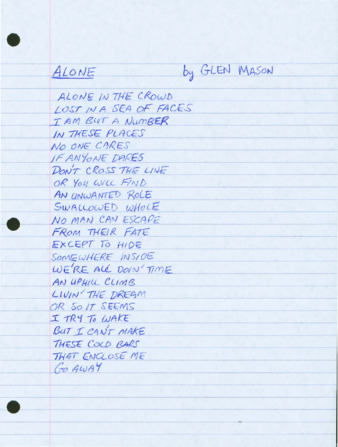 ALONE by GLEN MASON
ALONE IN THE CROWD
LOST IN A SEA OF FACES
I AM BUT A NUMBER
IN THESE PLACES
NO ONE CARES
IF ANYONE DARES
DON'T CROSS THE LINE
OR YOU WILL FIND
AN UNWANTED ROLE
SWALLOWED WHOLE
NO MAN CAN ESCAPE
FROM THEIR FATE
EXCEPT TO HIDE
SOMEWHERE INSIDE
WE'RE ALL DOIN' TIME
AN UPHILL CLIMB
LIVIN' THE DREAM
OR SO IT SEEMS
I TRY TO WAKE
BUT I CAN'T MAKE
THESE COLD BARS
THAT ENCLOSE ME
GO AWAY